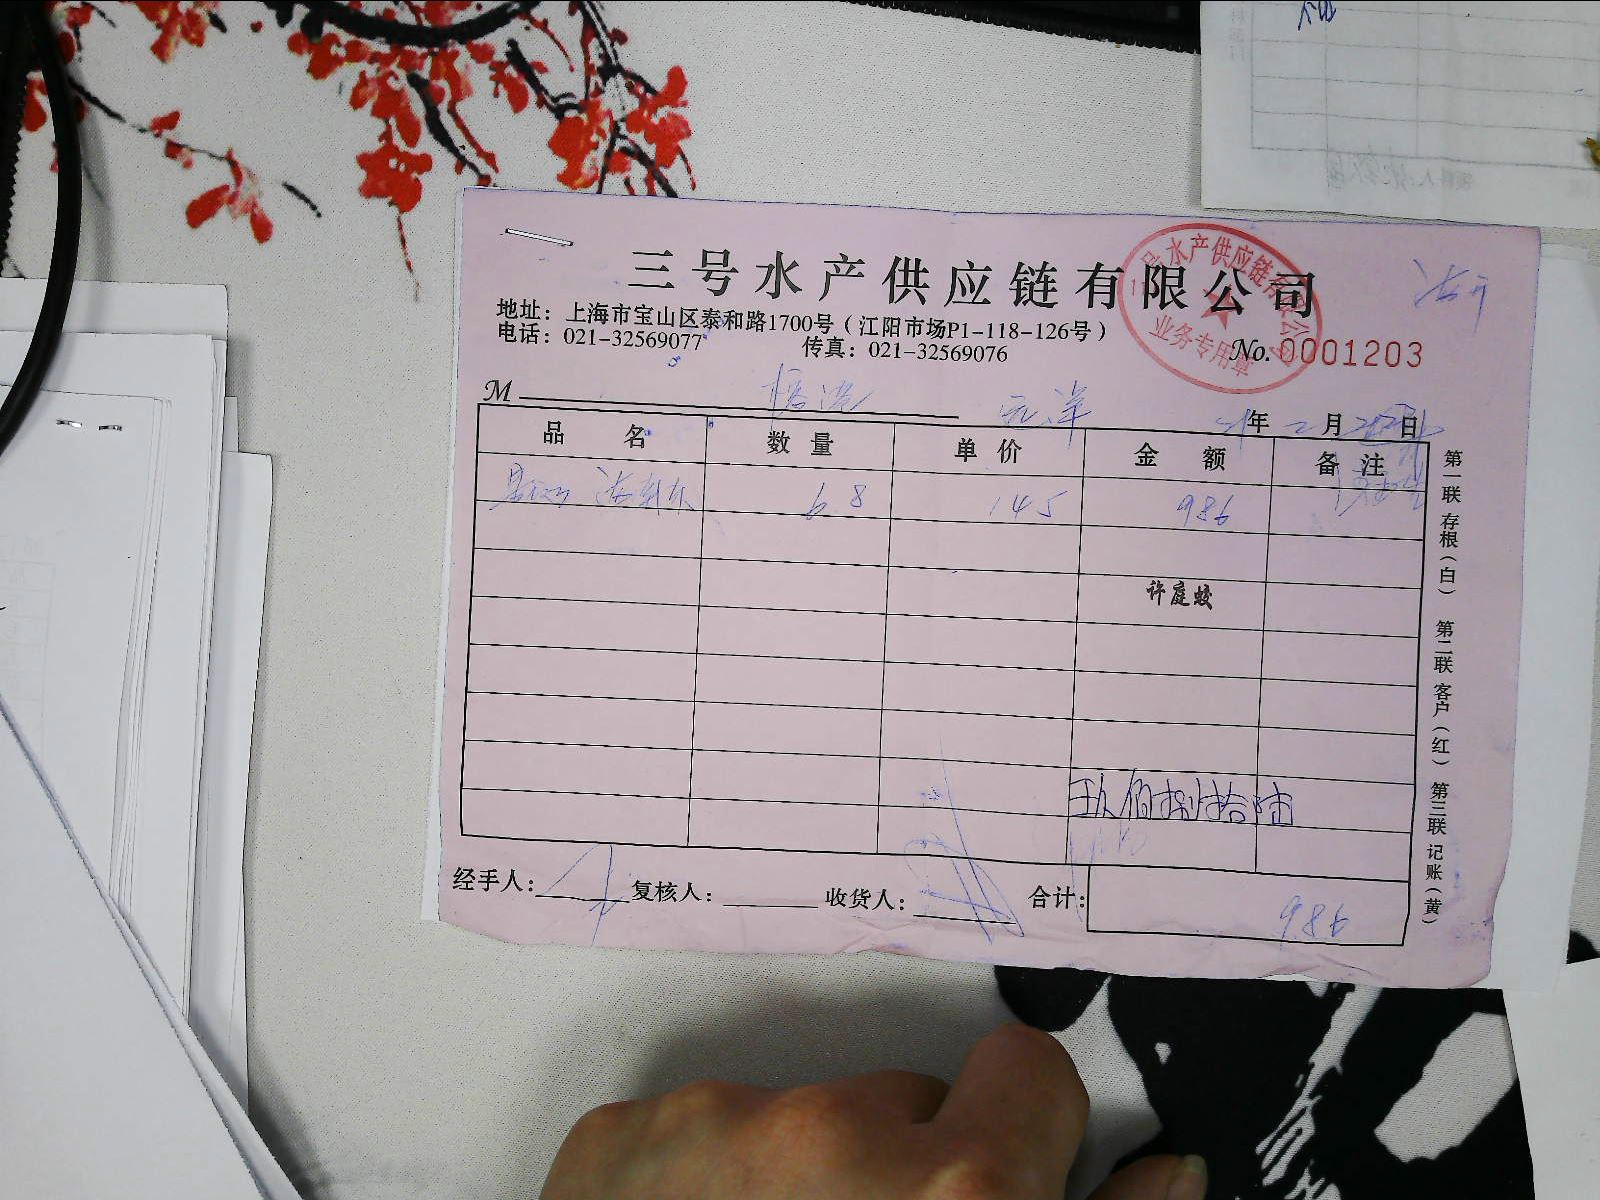 三号水产供应链有限公司
地址：上海市宝山区泰和路1700号（江阳市场P1-118-126号）
电话：021-32569077 传真：021-32569076
No. 0001203
水产供应链有限公司
业务专用章
M 远洋 年 二 月 日
品名 数量 单价 金额 备注
6.8 145 986
许庭蛟
玖佰捌拾陆
经手人： 复核人： 收货人： 合计： 986
第一联 存根（白） 第二联 客户（红） 第三联 记账（黄）